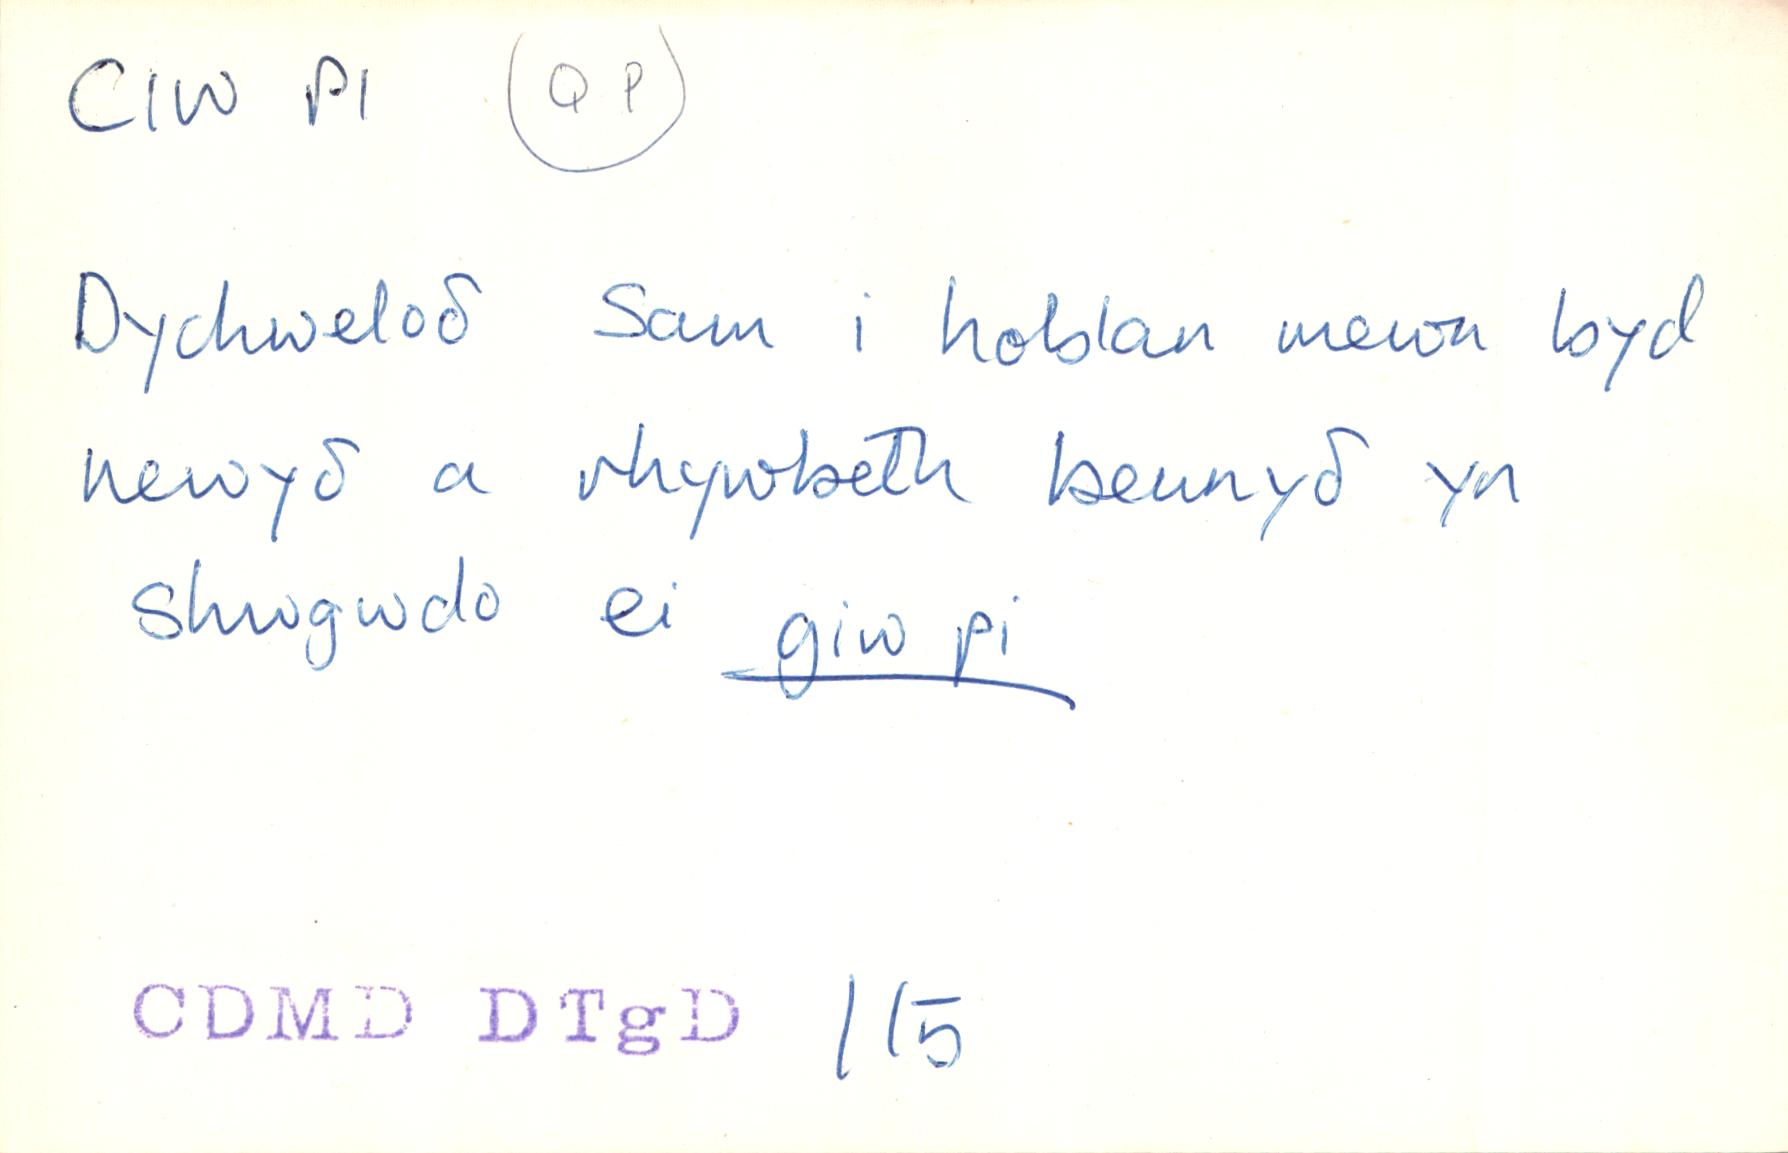 CIW PI (QP)
Dychweloδ Sam i hoblan mewn byd
newyδ a rhywbeth beunyδ yn
shwgwdo ei giw pi
CDMD DTgD 115